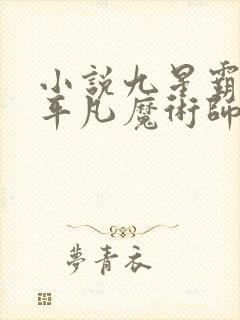 小説九星霸
平凡魔術師
夢青衣